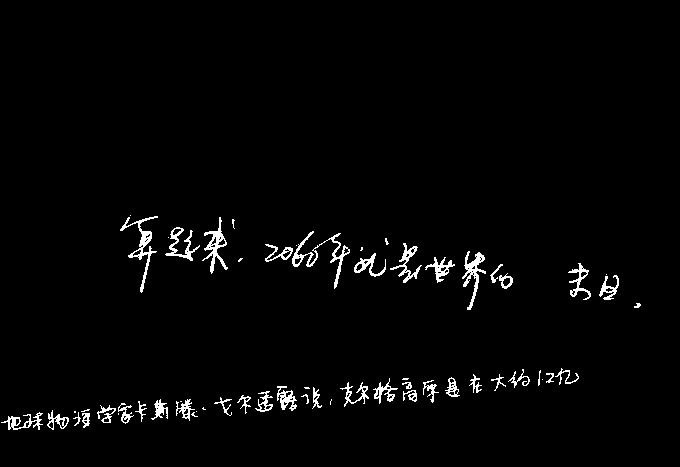 算起来，2060年就是世界的 末日。
地球物理学家卡斯滕·戈尔迈露说，克尔格高原是在大约12亿